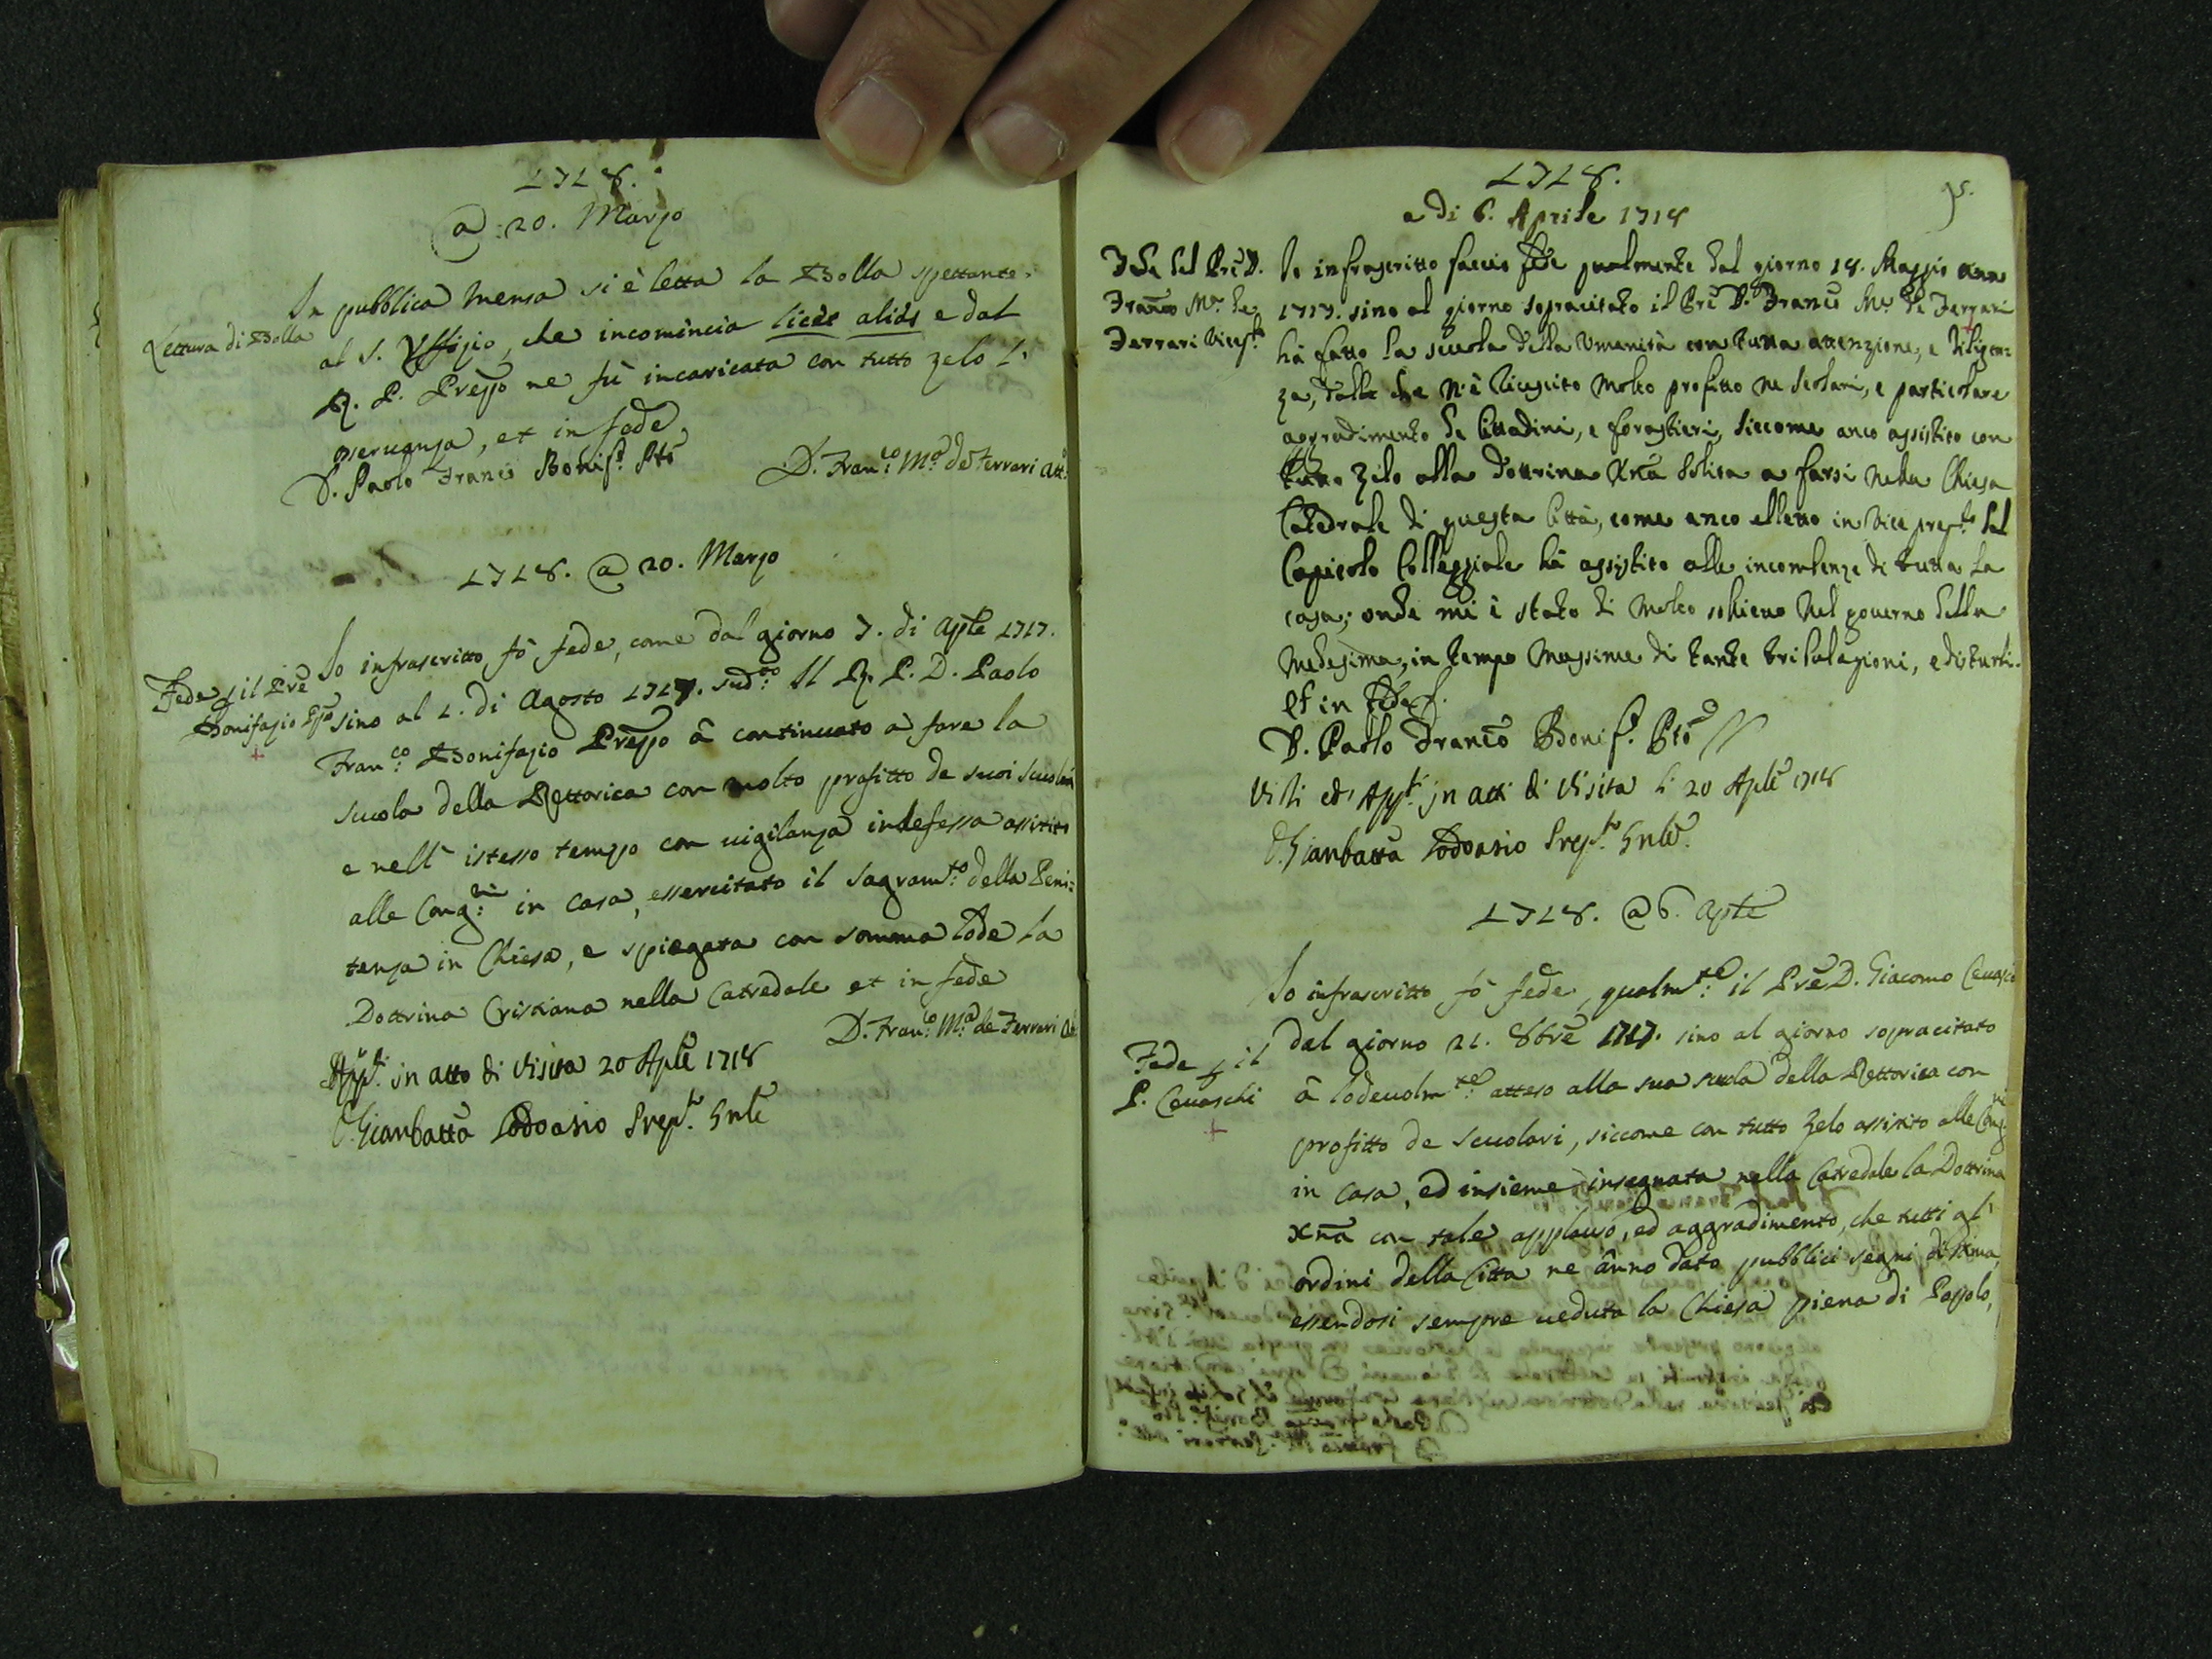 1718.
@ 20. Marzo
Lettura di Bolla
In pubblica mensa si è letta la Bolla spettante
al S. Uffizio, che incomincia licèt aliàs e dal
R. P. Preppo ne fù incaricata con tutto zelo l'
oseruanza, et in fede
D. Paolo Franco Bonif.o Pto
D. Fran.co M.a de Ferrari Att.
1718. @ 20. Marzo
Fede p il Pre
Bonifazio Ppo
Io infrascritto fò fede, come dal giorno 7. di Aple 1717.
sino al 1. di Agosto 1717. sud.to Il R. P. D. Paolo
Fran.co Bonifazio Preppo â continuato à fare la
scuola della Rettorica con molto profitto de suoi scuolari
e nell' istesso tempo con uigilanza indefessa assistito
alle Cong.ni in Casa, essercitato il sagram.to della Peni:
tenza in Chiesa, e spiegata con somma lode la
Dottrina Cristiana nella Catredale et in fede
D. Fran.co M.a de Ferrari Att
App.ti in atto di Visita 20 Aple 1718
D. Gianbatta Lodoasio Prep.to Gnle
1718.
95.
a di 6. Aprile 1718
Fede del Pre D.
Franco M.a de
Ferrari Vicep.to
Io infrascritto faccio fede qualmente dal giorno 18. Maggio anno
1717. sino al giorno sopracitato il Pre D. Franco M.a de Ferrari
hà fatto la scuola della Umanità con tutta attenzione, e diligen:
za, dalla che n'è riuscito molto profitto ne scolari, e particolare
aggradimento de Cittadini, e forastieri, siccome anco assistito con
tutto zelo alla dottrina Xna solita a farsi nella Chiesa
Catedrale di questa Città, come anco elletto in Vice prep.to dal
Capitolo Colleggiale hà assistito alle incombenze di tutta la
casa; onde mi è stato di molto solieuo nel gouerno della
medesima, in tempo massime di tante tribulazioni, e disturbi.
et in fede
D. Paolo Franco Bonif.o Pto
Visti ed App.ti in atti di Visita li 20 Aple 1718
D. Gianbatta Lodoasio Prep.to Gnle
1718. @ 6. Aple
Fede p il
P. Ceuaschi
Io infrascritto fò fede, qualm.te il Pre D. Giacomo Ceuasco
dal giorno 21. 8bre 1717. sino al giorno sopracitato
â lodeuolm.te atteso alla sua scuola della Rettorica con
profitto de scuolari, siccome con tutto zelo assistito alle Cong.ni
in casa, ed insieme insegnata nella Catredale la Dottrina
Xna con tale applauso, ed aggradimento, che tutti gl'
ordini della Citta ne ânno dato pubblici segni di stima,
essendosi sempre ueduta la Chiesa piena di Popolo,